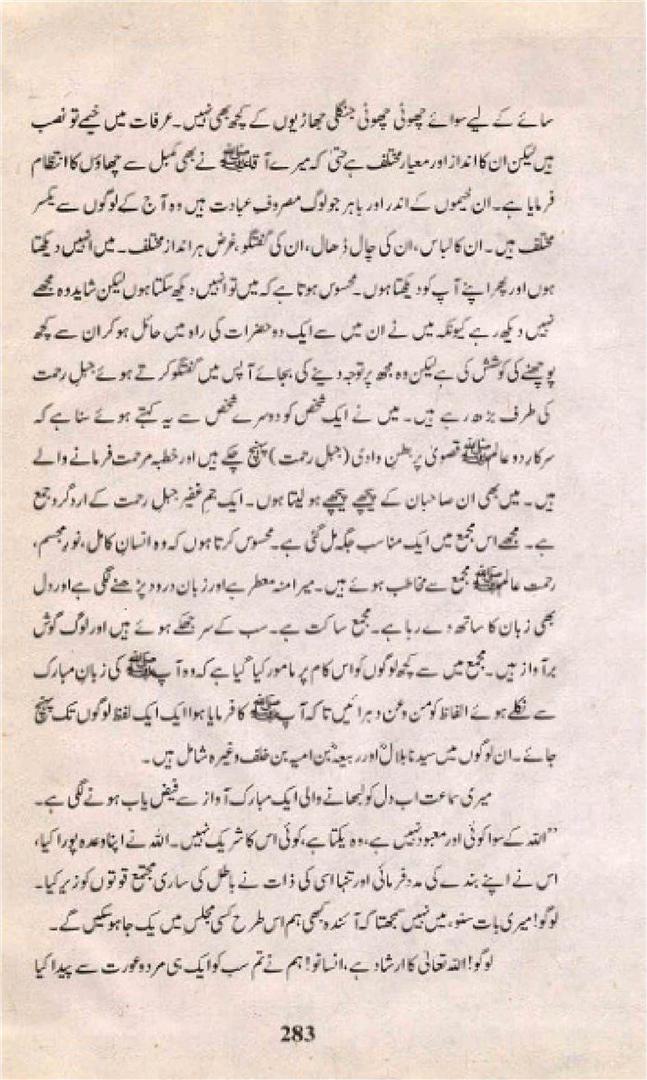 سائے کے لیے سوائے چھوٹی چھوٹی جنگلی جھاڑیوں کے کچھ بھی نہیں۔ عرفات میں خیمے تو نصب
ہیں لیکن ان کا انداز اور معیار مختلف ہے حتیٰ کہ میرے آقا ﷺ نے بھی کمبل سے چھاؤں کا انتظام
فرمایا ہے۔ ان خیموں کے اندر اور باہر جو لوگ مصروفِ عبادت ہیں وہ آج کے لوگوں سے یکسر
مختلف ہیں۔ ان کا لباس، ان کی چال ڈھال، ان کی گفتگو، غرض ہر انداز مختلف۔ میں انہیں دیکھتا
ہوں اور پھر اپنے آپ کو دیکھتا ہوں۔ محسوس ہوتا ہے کہ میں تو انہیں دیکھ سکتا ہوں لیکن شاید وہ مجھے
نہیں دیکھ رہے کیونکہ میں نے ان میں سے ایک دو حضرات کی راہ میں حائل ہو کر ان سے کچھ
پوچھنے کی کوشش کی ہے لیکن وہ مجھ پر توجہ دینے کی بجائے آپس میں گفتگو کرتے ہوئے جبل رحمت
کی طرف بڑھ رہے ہیں۔ میں نے ایک شخص کو دوسرے شخص سے یہ کہتے ہوئے سنا ہے کہ
سرکار دو عالم ﷺ قصویٰ پر بطن وادی (جبل رحمت) پہنچ چکے ہیں اور خطبہ مرحمت فرمانے والے
ہیں۔ میں بھی ان صاحبان کے پیچھے پیچھے ہو لیتا ہوں۔ ایک جم غفیر جبل رحمت کے ارد گرد جمع
ہے۔ مجھے اس مجمع میں ایک مناسب جگہ مل گئی ہے۔ محسوس کرتا ہوں کہ وہ انسان کامل، نور مجسم،
رحمت عالم ﷺ مجمع سے مخاطب ہوئے ہیں۔ میرا منہ معطر ہے اور زبان درود پڑھنے لگی ہے اور دل
بھی زبان کا ساتھ دے رہا ہے۔ مجمع ساکت ہے۔ سب کے سر جھکے ہوئے ہیں اور لوگ گوش
بر آواز ہیں۔ مجمع میں سے کچھ لوگوں کو اس کام پر مامور کیا گیا ہے کہ وہ آپ ﷺ کی زبانِ مبارک
سے نکلے ہوئے الفاظ کو من و عن دہرائیں تا کہ آپ ﷺ کا فرمایا ہوا ایک ایک لفظ لوگوں تک پہنچ
جائے۔ ان لوگوں میں سیدنا بلالؓ اور ربیعہؓ بن امیہ بن خلف وغیرہ شامل ہیں۔
میری سماعت اب دل کو لبھانے والی ایک مبارک آواز سے فیض یاب ہونے لگی ہے۔
”اللہ کے سوا کوئی اور معبود نہیں ہے، وہ یکتا ہے، کوئی اس کا شریک نہیں۔ اللہ نے اپنا وعدہ پورا کیا،
اس نے اپنے بندے کی مدد فرمائی اور تنہا اسی کی ذات نے باطل کی ساری مجتمع قوتوں کو زیر کیا۔
لوگو! میری بات سنو، میں نہیں سمجھتا کہ آئندہ کبھی ہم اس طرح کسی مجلس میں یک جا ہو سکیں گے۔
لوگو! اللہ تعالیٰ کا ارشاد ہے، انسانو! ہم نے تم سب کو ایک ہی مرد و عورت سے پیدا کیا
283